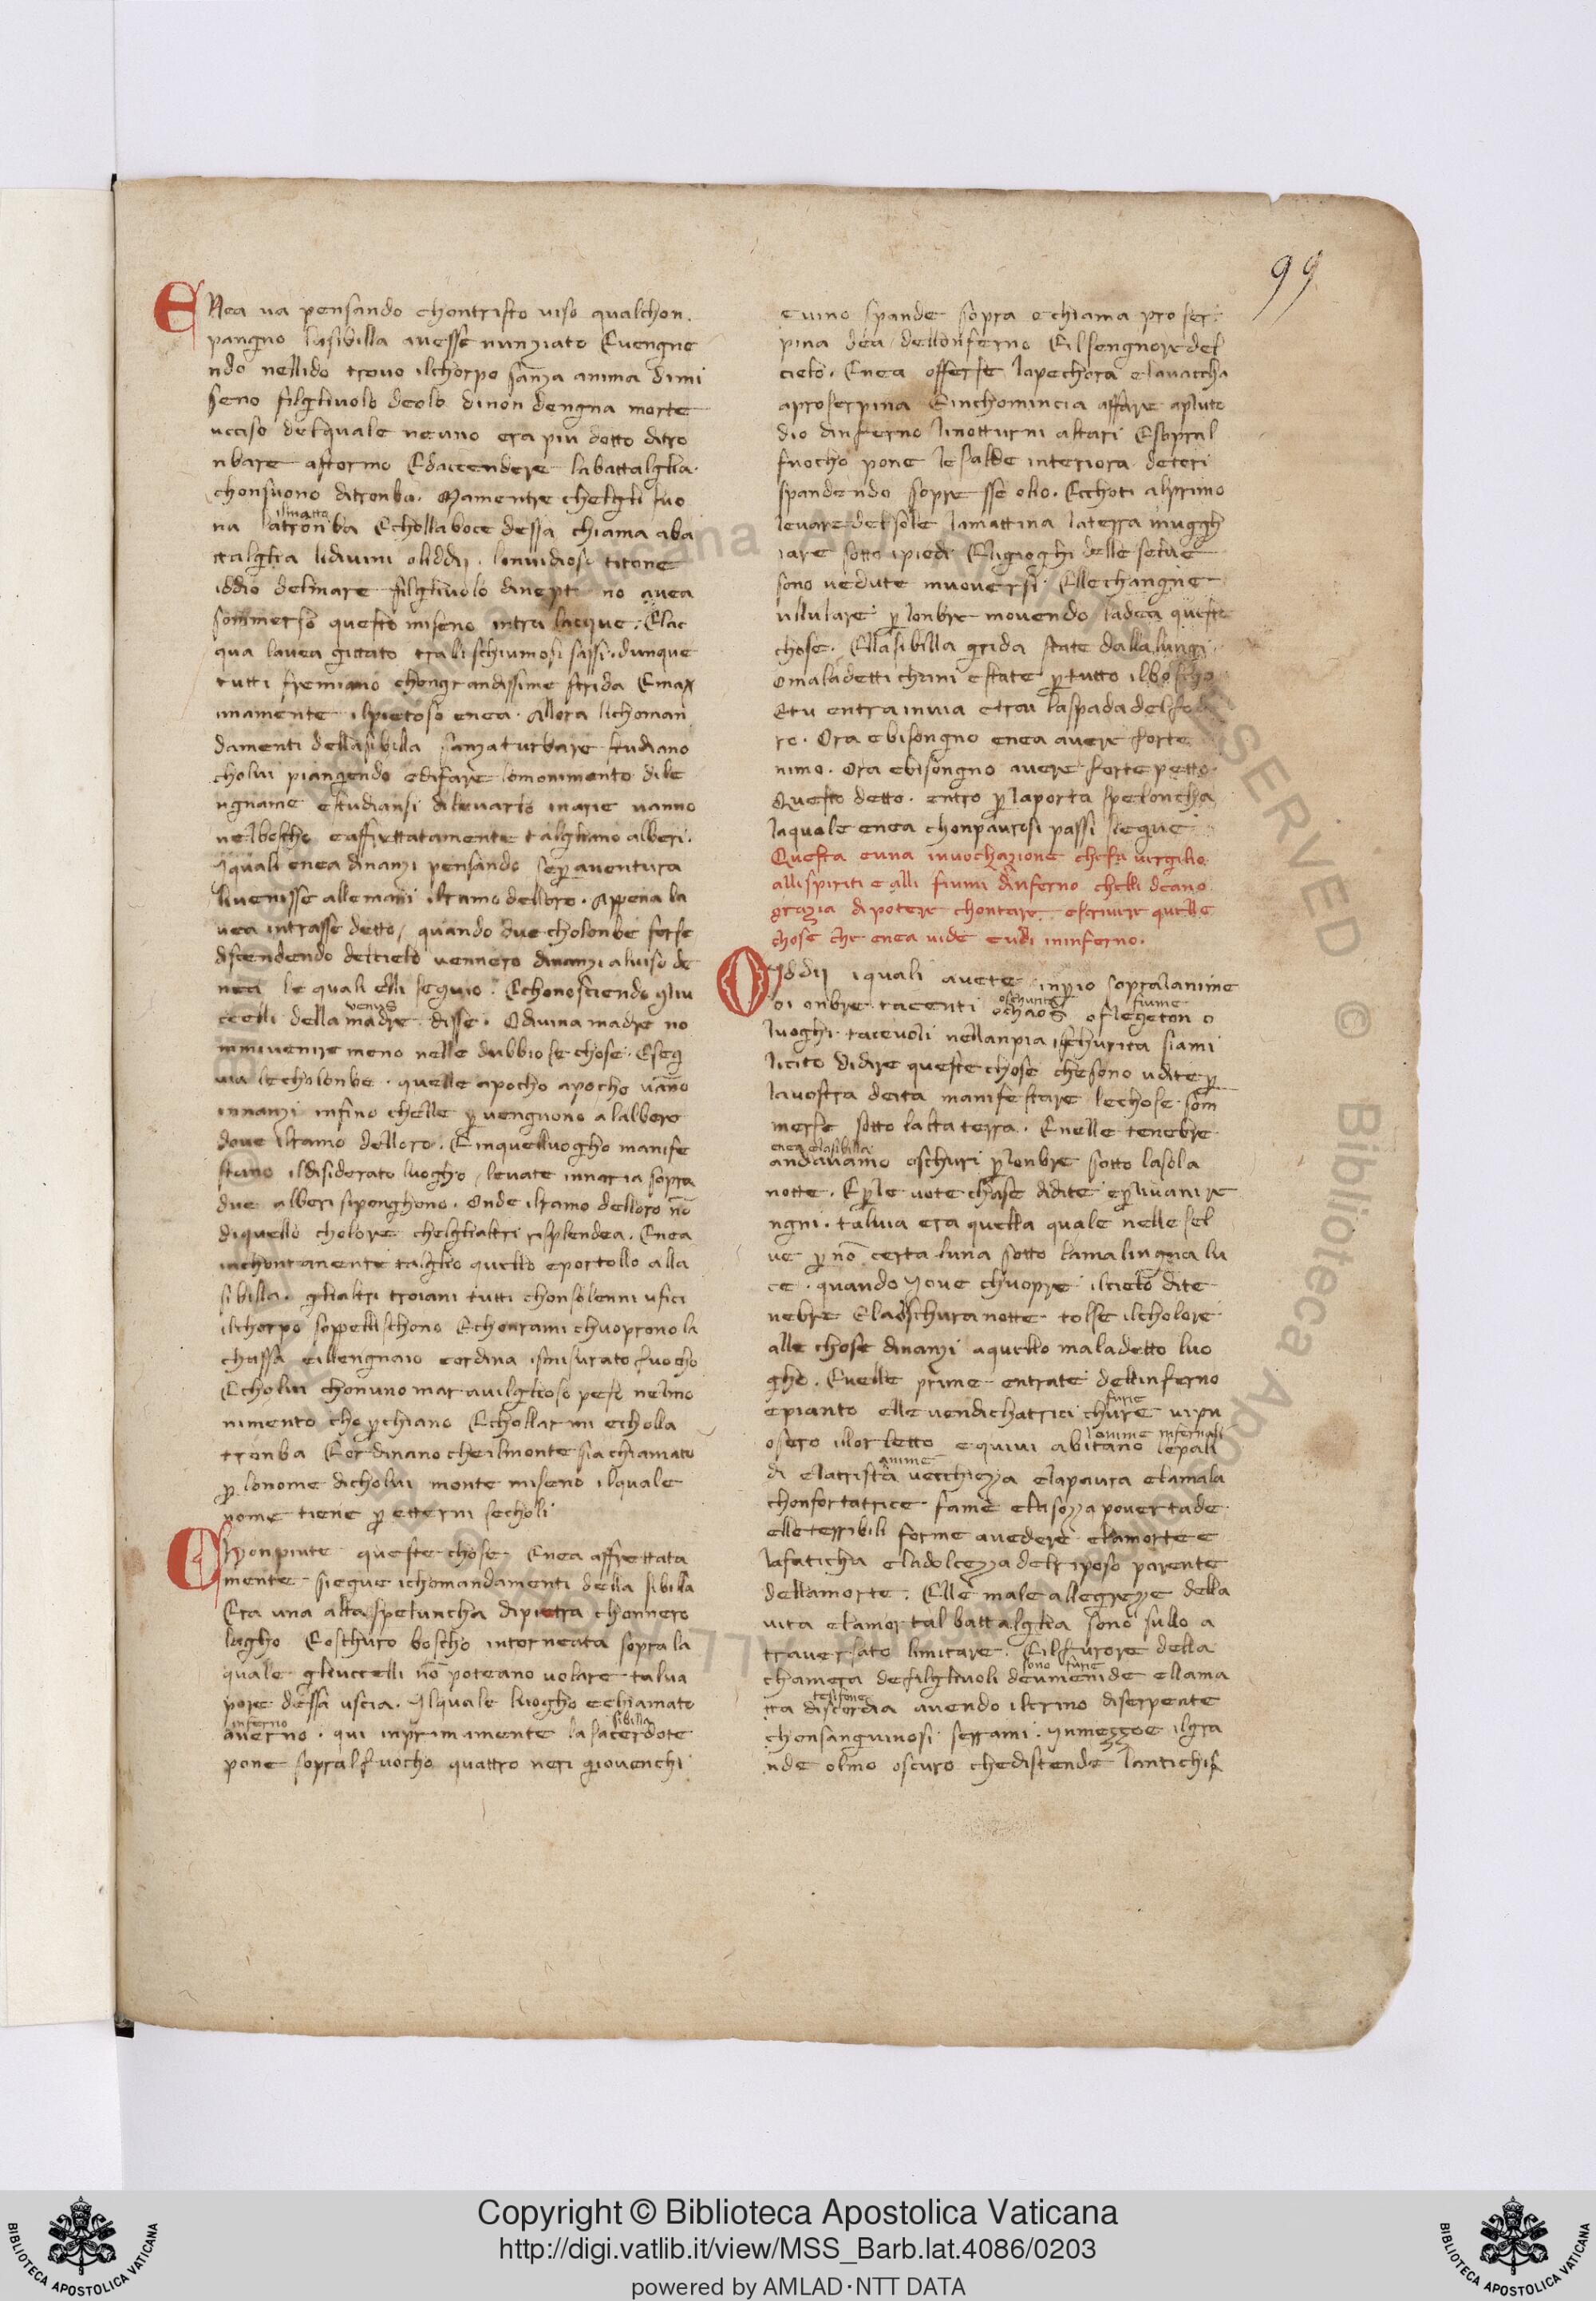 99
ENea va pensando chontristo viso qualchon
pangno lasibilla avesse nunziato Evengne
ndo nellido trovo ilchorpo sanza anima dimi
seno filgluvolo deolo dinon dengna morte
ucciso delquale neuno era piu dotto ditro
nbare astormo Edaccendere labattalglia
chonsuono ditronba. Mamentre chelgli suo
ilmatto
na latronba Echollaboce dessa chiama aba
ttalglia lidivini oliddij. lonvidioso titone
iddio delmare filgluvolo dinept no avea
sommerso questo miseno intra lacque. Elac
qua lavea gittato tralischiumosi sassi. dunque
tutti fremiano chongrandissime strida Emax
imamente ilpietoso enea. Allora lichoman
damenti dellasibilla sanzaturbare studiano
cholui piangendo edifare lomonimento dile
ngname estudiansi dilevarlo inarie vanno
nelboscho eaffrettatamente talgliano alberi.
Iquali enea dinanzi pensando seper aventura
livenisse allemani ilramo delloro. Appena la
vea intrasse detto, quando due cholonbe forse
discendendo delcielo vennero dinanzi alviso de
nea le quali elli seguio. Echonosciendo gliu
venus
ccelli della madre disse. Odivina madre no
mmivenire meno nelle dubbiose chose. Eseg
uia lecholonbe. quelle apocho apocho vanno
innanzi infino chelle pervengnono alalbero
dove ilramo delloro. Einquelluogho manife
stano ildisiderato luogho, levate innaria sopra
due alberi sipongnono. Onde ilramo delloro no
diquello cholore chelglialtri risplendea. Enea
inchontanente talglio quello eportollo alla
sibilla. glialtri troiani tutti chonsolenni ufici
ilchorpo soppellischono Echourami chuoprono la
chassa eillengnaio eordina ismisurato fuocho
Echolui chonuno maravilglioso peso nelmo
nimento choperchiano Echollarmi echolla
tronba Eordinano cheilmonte sia chiamato
per lonome dicholui monte miseno ilquale
nome tiene per etterni secholi
COnpiute queste chose Enea affrettata
mente siegue ichomandamenti della sibilla
Era una alta speluncha dipietra chonnero
lagho Eoschuro boscho intorneata sopra la
quale gliuccelli no poteano volare talva
pore dessa uscia. Ilquale luogho echiamato
inferno sibilla
averno. qui inprimamente lasacerdote
pone sopralfuocho quattro neri giovenchi
evino spande sopra echiama proser
pina dea dellonferno Eilsengnore del
cielo. Enea offerse lapechora elavaccha
aproserpina Einchomincia affare apluto
dio dinferno linotturni altari Esopral
fuocho pone lesalde interiora detori
spandendo sopre sse olio. Ecchoti alprimo
levare delsole lamattina laterra mugghi
iare sotto ipiedi Eligioghi delle selve
sono vedute muoversi. Ellechangne
ullulare per lonbre movendo ladea queste
chose. Ellasibilla grida state dallalungi
omaladetti chani estate per tutto ilboscho
Etu entra invia etrai laspada delfode
ro. Ora ebisongno enea avere forte
nimo. Ora ebisongno avere forte petto.
Questo detto. entro per laporta speloncha
laquale enea chonpaurosi passi siegue
Questa euna invochazione chefa virgilio
allispiriti e alli fiumi dinferno chelli deano
grazia dipotere chontare escrivere quelle
chose che enea vide eudi ininferno.
OIddij iquali avete inperio sopralanime
oschurita fiume
oi onbre tacenti ochaos oflegeton o
luoghi tacevoli nellanpia ischurita siami
licito didire queste chose chesono udite per
lavostra deita manifestare lechose som
merse sotto lalta terra. Enelle tenebre
enea elasibilla
andavamo oschuri per lonbre sotto lasola
notte. Eperle vote chase didite eperlivani re
ngni. talvia era quella quale nelle sel
ve per no certa luna sotto lamalingna lu
ce. quando Jove chuopre ilcielo dite
nebre Elaoschura notte tolse ilcholore
alle chose dinanzi aquello maladetto luo
gho. Enelle prime entrate dellinferno
furie
epianto elle vendichatrici chure vipu
lanime infernali
osero illor letto equivi abitano lepali
anime
di elatrista vecchiezza elapaura elamala
chonfortatrice fame elasozza povertade
elleterribili forme avedere elamorte e
lafaticha eladolcezza delriposo parente
dellamorte. Elle male allegrezze della
vita elamortal battalglia sono sullo a
traversato limitare. Eilfurore della
sono furie
chamera defilgluvoli deumenide ellama
tesifone
tta discordia avendo ilcrino diserpente
chonsanguinosi serrami. Inmezzoe ilgra
nde olmo oscuro chedistende lantichis
Copyright © Biblioteca Apostolica Vaticana
http://digi.vatlib.it/view/MSS_Barb.lat.4086/0203
powered by AMLAD·NTT DATA
BIBLIOTECA APOSTOLICA VATICANA
BIBLIOTECA APOSTOLICA VATICANA